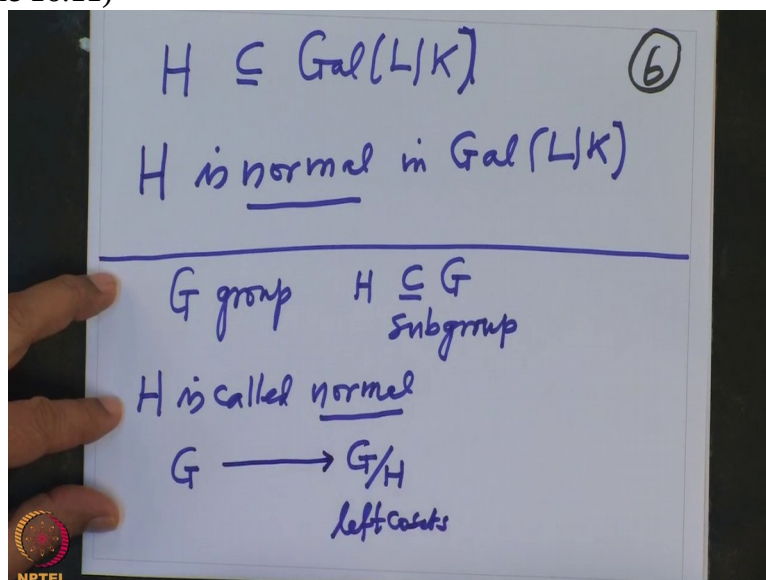 H ⊆ Gal(L|K)
6
H is normal in Gal(L|K)
G group H ⊆ G
subgroup
H is called normal
G ⟶ G/H
left cosets
NPTEL